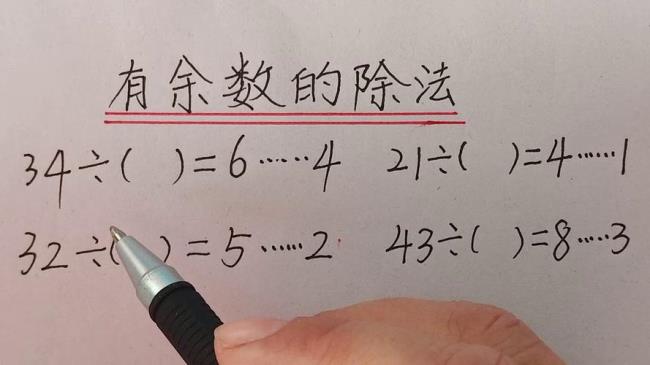 有余数的除法
34÷( )=6……4 21÷( )=4……1
32÷( )=5……2 43÷( )=8……3